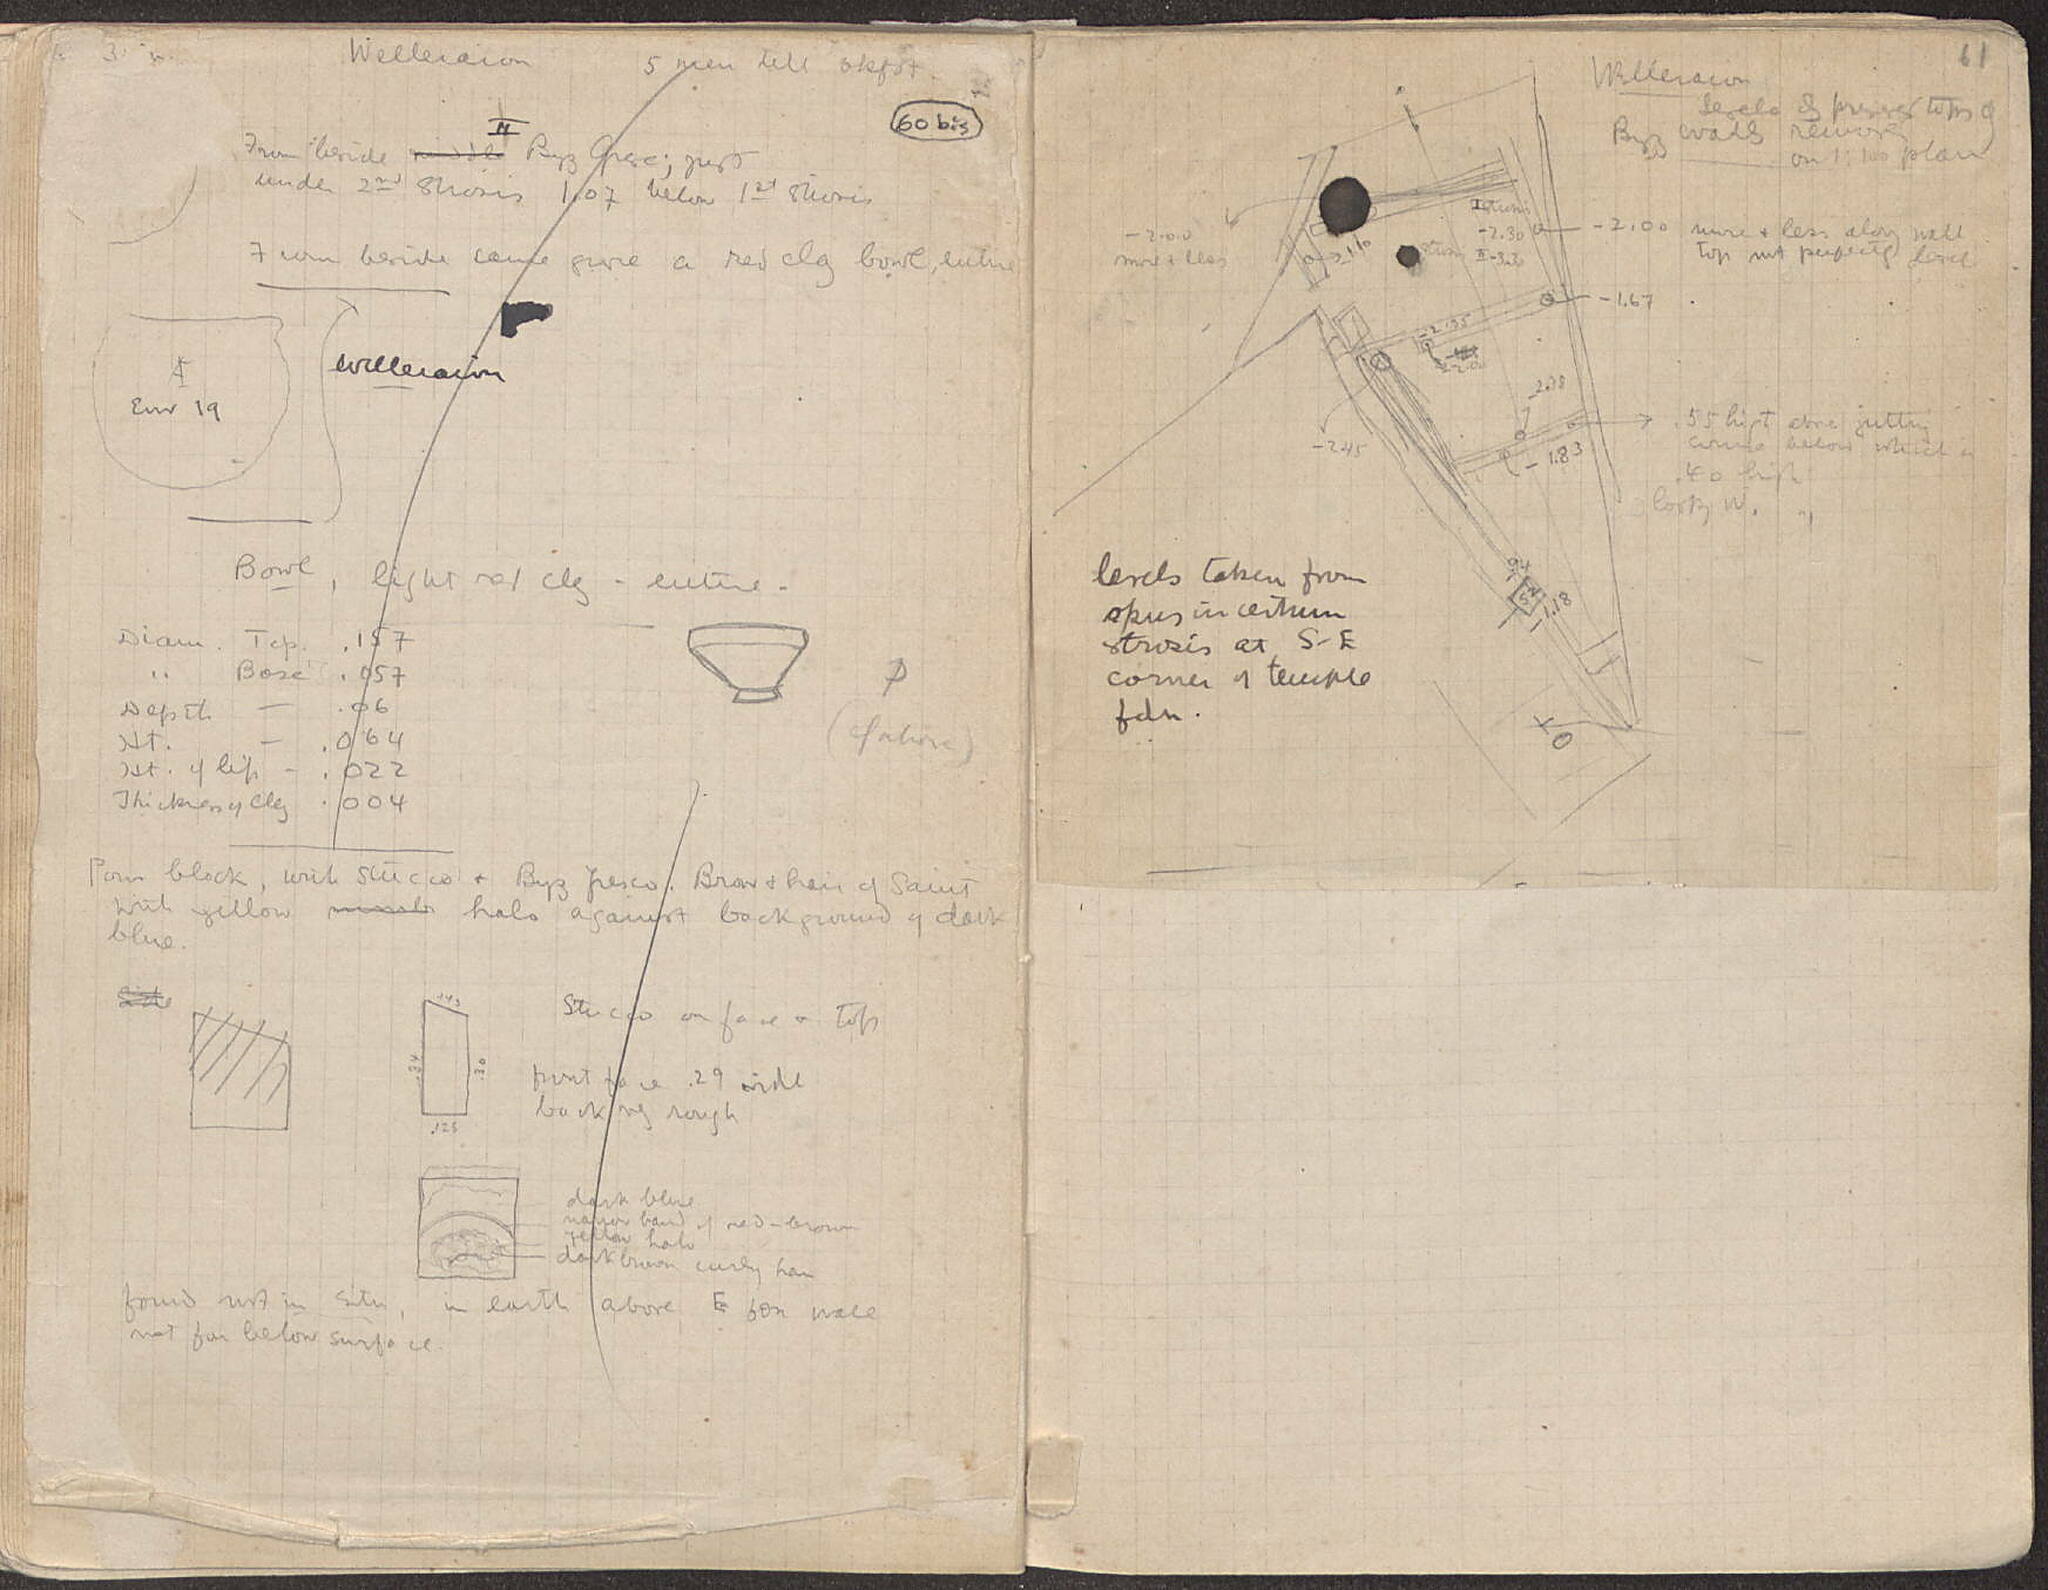 Welleraion 5 men till bkfst.
60 bis
II
From beside middle Byz Grave; just
under 2nd Strosis 1.07 below 1st Strosis
From beside same grave a red clay bowl, entire
Env 19
Welleraion
Bowl, light red clay - entire -
Diam. Top. .157
" Base .057
Depth — .06
Ht. — .064
Ht. of lip — .022
Thickness of clay .004
P
Poros block, with Stucco + Byz fresco. Brow & hair of Saint
with yellow halo against background of dark
blue.
Side
.143
.34
.30
.125
Stucco on face & top
front face .29 wide
backing rough
dark blue
narrow band of red-brown
yellow halo
dark brown curly hair
found not in situ, in earth above E fdn wall
not far below surface.
61
Welleraion
levels of preserved tops of
Byz walls removed
on 1:100 plan
-2.00
more & less
-2.10
I strosis
-2.30
Strosis II -3.20
-2.00 more & less along wall
top not perfectly level
-1.67
-2.135
-2.20
-2.18
-2.45
-1.83
.55 high above jutting
course below which is
.40 high
looking W. "
.94
-1.18
levels taken from
opus incertum
strosis at S-E
corner of temple
fdn.
± 0